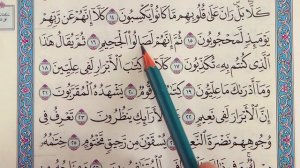 كَلَّا بَلْ رَانَ عَلَىٰ قُلُوبِهِم مَّا كَانُوا۟ يَكْسِبُونَ ١٤ كَلَّآ إِنَّهُمْ عَن رَّبِّهِمْ
يَوْمَئِذٍ لَّمَحْجُوبُونَ ١٥ ثُمَّ إِنَّهُمْ لَصَالُوا۟ ٱلْجَحِيمِ ١٦ ثُمَّ يُقَالُ هَٰذَا
ٱلَّذِى كُنتُم بِهِۦ تُكَذِّبُونَ ١٧ كَلَّآ كِتَٰبَ ٱلْأَبْرَارِ لَفِى عِلِّيِّينَ ١٨
وَمَآ أَدْرَىٰكَ مَا عِلِّيُّونَ ١٩ كِتَٰبٌ يَشْهَدُهُ ٱلْمُقَرَّبُونَ ٢١
إِنَّ ٱلْأَبْرَارَ لَفِى نَعِيمٍ ٢٢ عَلَى ٱلْأَرَآئِكِ يَنظُرُونَ ٢٣ تَعْرِفُ فِى
وُجُوهِهِمْ نَضْرَةَ ٱلنَّعِيمِ يُسْقَوْنَ مِن رَّحِيقٍ مَّخْتُومٍ ٢٥ خِتَٰمُهُۥ